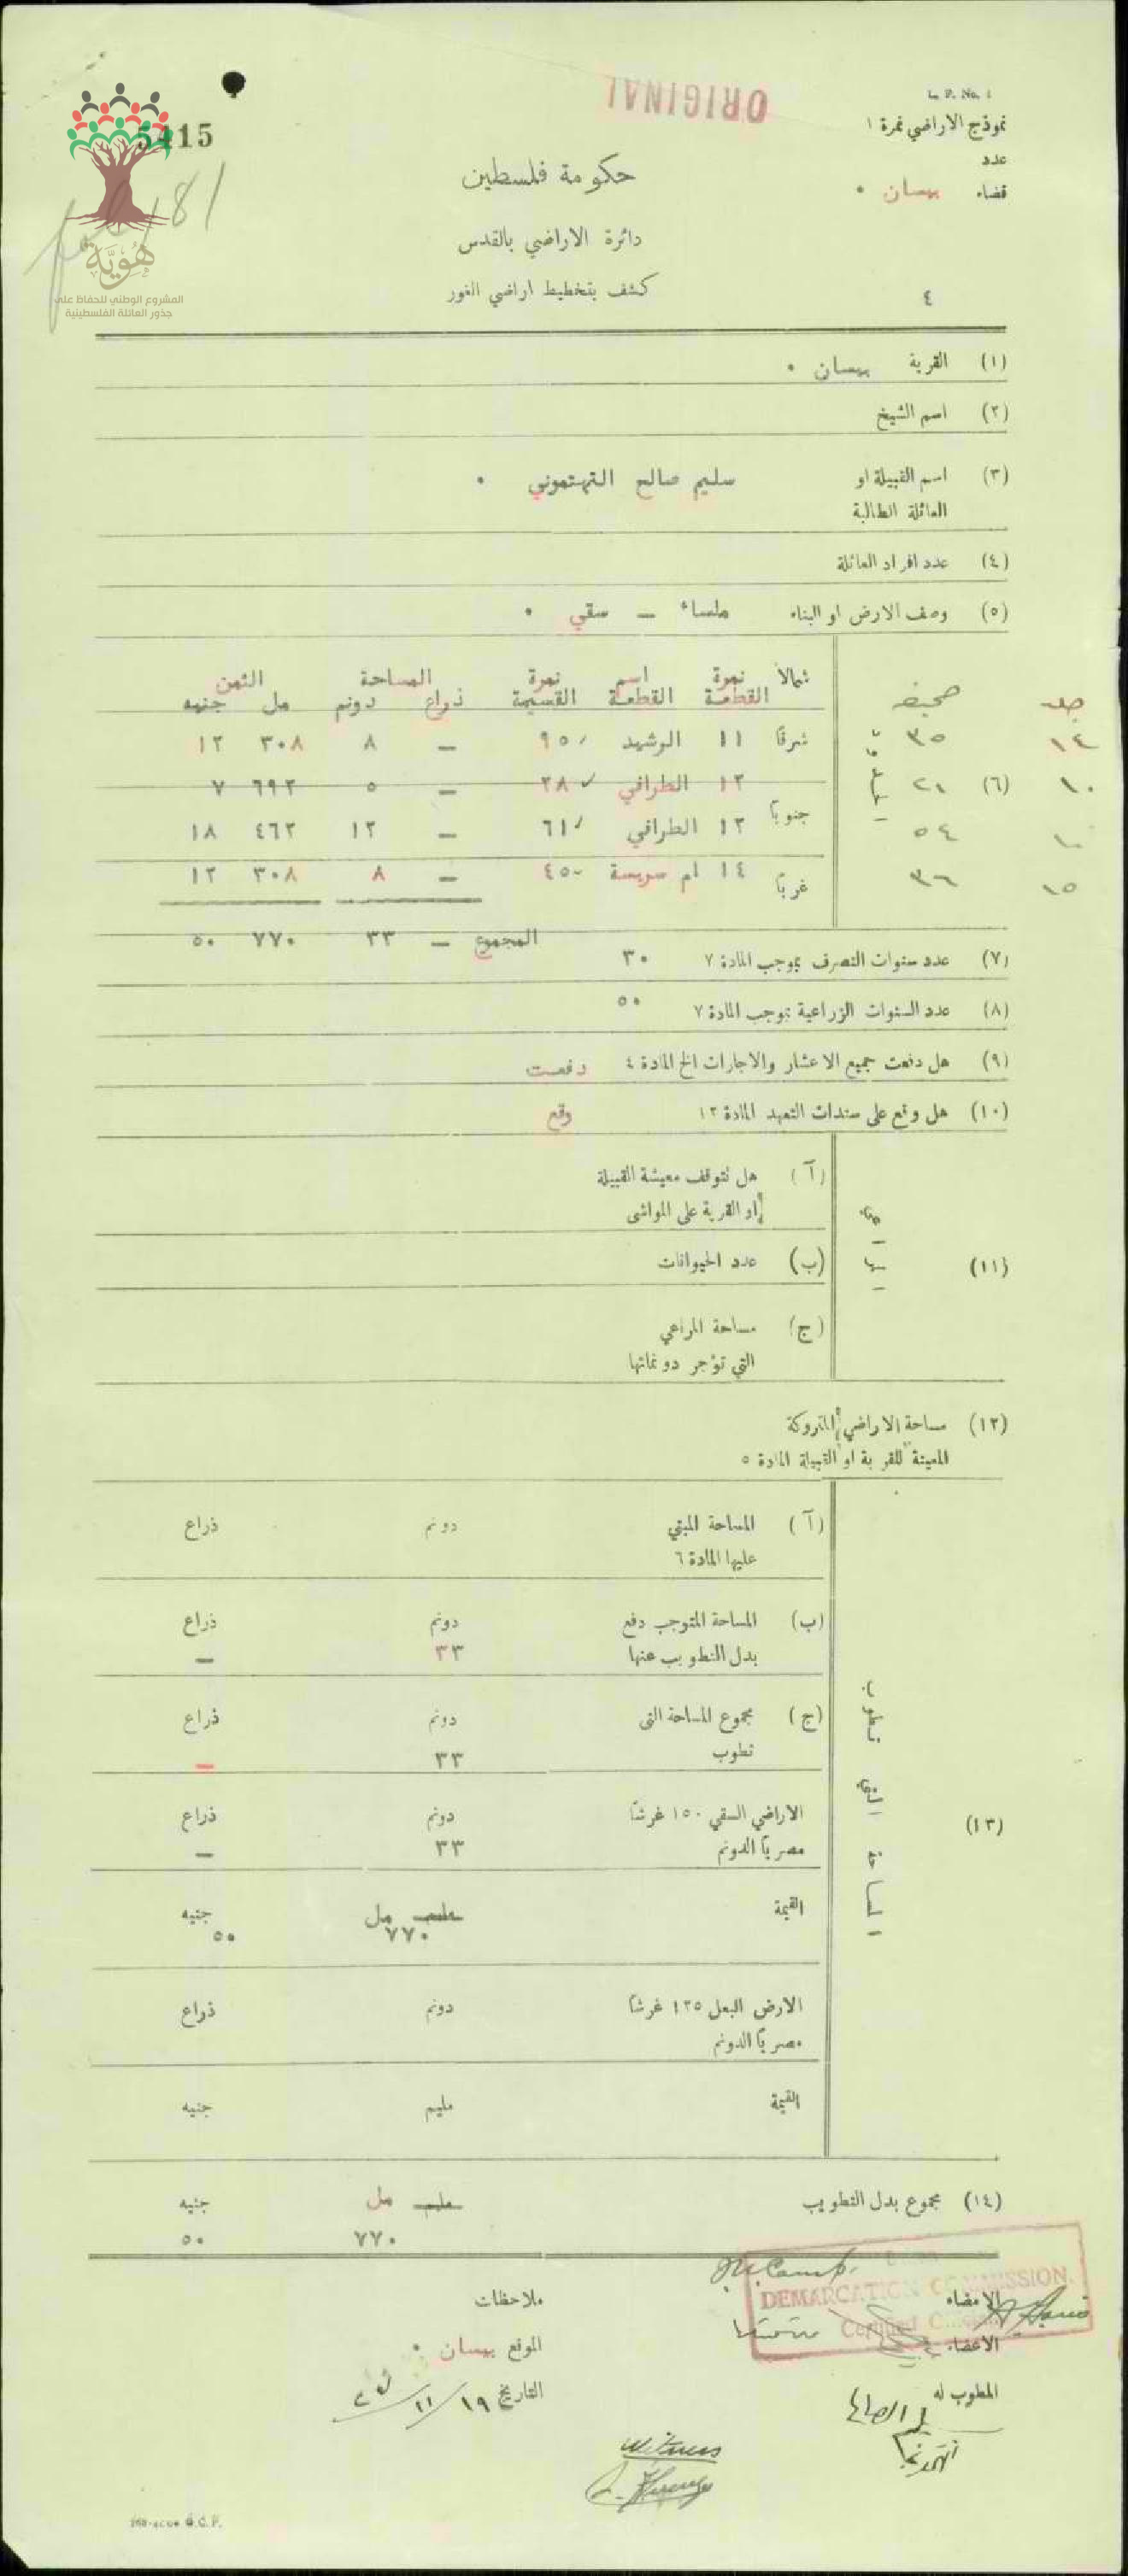 ORIGINAL
L. P. No. 1
نموذج الاراضي نمرة ١
عدد
قضاء بيسان ٠
5415
181
هُوِيَّة
المشروع الوطني للحفاظ على
جذور العائلة الفلسطينية
حكومة فلسطين
دائرة الاراضي بالقدس
كشف بتخطيط اراضي الغور
٤
(١) القرية بيسان ٠
(٢) اسم الشيخ
(٣) اسم القبيلة او العائلة الطالبة سليم صالح التهتموني ٠
(٤) عدد افراد العائلة
(٥) وصف الارض او البناء ملساء – سقي ٠
جلد صحيفة شمالا نمرة القطعة اسم القطعة نمرة القسيمة المساحة ذراع دونم الثمن مل جنيه
١٤ ٣٥ شرقا ١١ الوشهد ٩٥ – ٨ ٣٠٨ ١٢
(٦) ١٠ ٢١ ١٢ الطرافي ٢٨ – ٥ ٦٩٢ ٧
١٠ ٥٤ جنوبا ١٢ الطرافي ٦١ – ١٢ ٤٦٢ ١٨
١٥ ٣٦ غربا ١٤ ام سريسة ٤٥ – ٨ ٣٠٨ ١٢
المجموع – ٣٣ ٧٧٠ ٥٠
(٧) عدد سنوات التصرف بموجب المادة ٧ ٣٠
(٨) عدد السنوات الزراعية بموجب المادة ٧ ٥٠
(٩) هل دفعت جميع الاعشار والاجارات الخ المادة ٤ دفعت
(١٠) هل وقع على سندات التعهد المادة ١٢ وقع
(١١) (آ) هل تتوقف معيشة القبيلة
أو القرية على المواشي
(ب) عدد الحيوانات
(ج) مساحة المراعي
التي تؤجر دونماتها
(١٢) مساحة الاراضي المتروكة
المعينة للقرية او القبيلة المادة ٥
(١٣) المساحة التي تطوب
(آ) المساحة المبني دونم ذراع
عليها المادة ٦
(ب) المساحة المتوجب دفع دونم ذراع
بدل التطويب عنها ٣٣ –
(ج) مجموع المساحة التي دونم ذراع
تطوب ٣٣ –
الاراضي السقي ١٥٠ غرشا دونم ذراع
مصريا الدونم ٣٣ –
القيمة مليم مل جنيه
٧٧٠ ٥٠
الارض البعل ١٢٥ غرشا دونم ذراع
مصريا الدونم
القيمة مليم جنيه
(١٤) مجموع بدل التطويب مليم مل جنيه
٧٧٠ ٥٠
DEMARCATION COMMISSION.
Certified C
الامضاء
ملاحظات
الاعضاء
الموقع بيسان ٠
المطوب له
التاريخ ١٩/١١/
Witness
G.C.P.